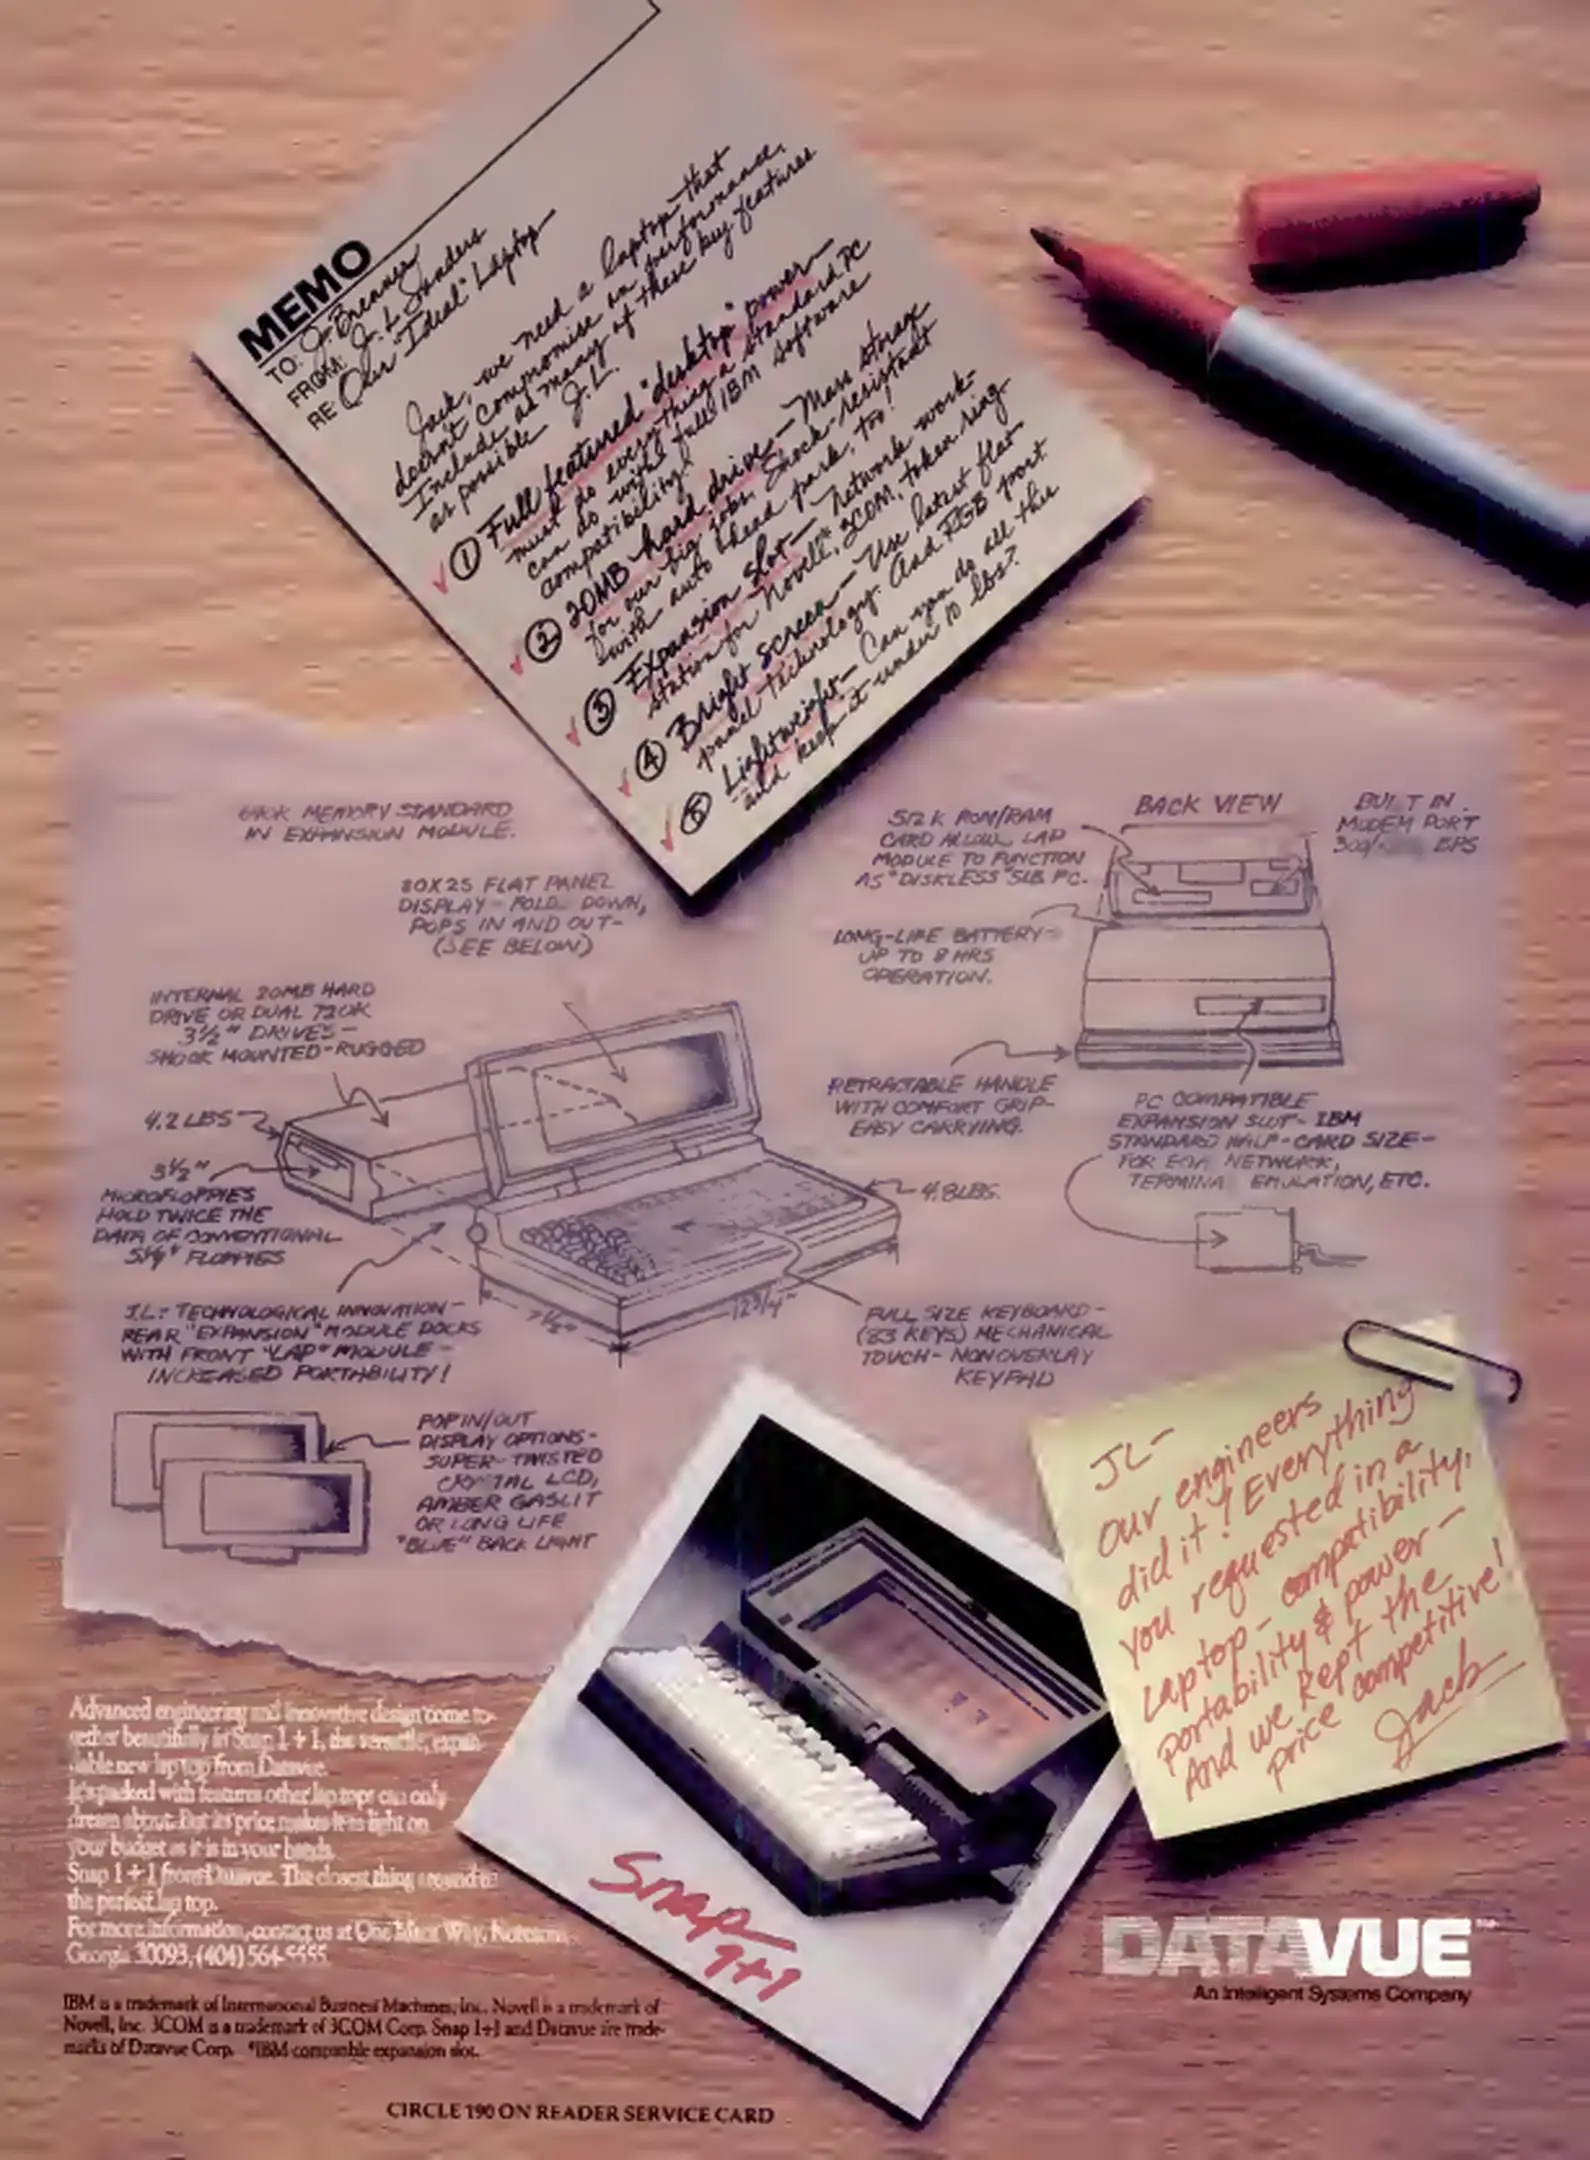 MEMO
TO: J. Brenner
FROM: J. L. Sanders
RE: Our "Ideal" Laptop
Jack, we need a laptop that
doesn't compromise on performance.
Include as many of these key features
as possible J.L.
✓ ① Full featured "desktop" power—
must do everything a standard PC
can do with full IBM software
compatibility!
✓ ② 20MB hard drive — Mass storage
for our big jobs. Shock-resistant
with auto head park, too!
✓ ③ Expansion slot— network work-
station for Novell, 3COM, token ring.
✓ ④ Bright screen— Use latest flat
panel technology. And RGB port
✓ ⑤ Lightweight— Can you do all this
and keep it under 10 lbs?
640K MEMORY STANDARD
IN EXPANSION MODULE.
80X25 FLAT PANEL
DISPLAY - FOLD DOWN,
POPS IN AND OUT-
(SEE BELOW)
INTERNAL 20MB HARD
DRIVE OR DUAL 720K
3½" DRIVES-
SHOCK MOUNTED-RUGGED
4.2 LBS
3½"
MICROFLOPPIES
HOLD TWICE THE
DATA OF CONVENTIONAL
5¼" FLOPPIES
J.L.: TECHNOLOGICAL INNOVATION-
REAR "EXPANSION" MODULE DOCKS
WITH FRONT "LAP" MODULE-
INCREASED PORTABILITY!
4.8 LBS.
12¾"
FULL SIZE KEYBOARD-
(83 KEYS) MECHANICAL
TOUCH - NON OVERLAY
KEYPAD
512K ROM/RAM
CARD ALLOW LAP
MODULE TO FUNCTION
AS "DISKLESS" SUB PC.
BACK VIEW
BUILT IN
MODEM PORT
300/ BPS
LONG-LIFE BATTERY-
UP TO 8 HRS
OPERATION.
RETRACTABLE HANDLE
WITH COMFORT GRIP-
EASY CARRYING.
PC COMPATIBLE
EXPANSION SLOT- IBM
STANDARD HALF-CARD SIZE-
FOR EGA, NETWORK,
TERMINAL EMULATION, ETC.
POP IN/OUT
DISPLAY OPTIONS-
SUPER-TWISTED
CRYSTAL LCD,
AMBER GASLIT
OR LONG LIFE
"BLUE" BACK LIGHT
JL-
our engineers
did it! Everything
you requested in a
Laptop - compatibility,
portability & power-
And we kept the
price competitive!
Jack
Snap
1+1
Advanced engineering and innovative design come to-
gether beautifully in Snap 1+1, the versatile, expan-
dable new lap top from Datavue.
It's packed with features other lap tops can only
dream about. But its price makes it as light on
your budget as it is in your hands.
Snap 1+1 from Datavue. The closest thing around to
the perfect lap top.
For more information, contact us at One Meca Way, Norcross,
Georgia 30093, (404) 564-5555.
IBM is a trademark of International Business Machines, Inc. Novell is a trademark of
Novell, Inc. 3COM is a trademark of 3COM Corp. Snap 1+1 and Datavue are trade-
marks of Datavue Corp. *IBM compatible expansion slot.
DATAVUE™
An Intelligent Systems Company
CIRCLE 190 ON READER SERVICE CARD